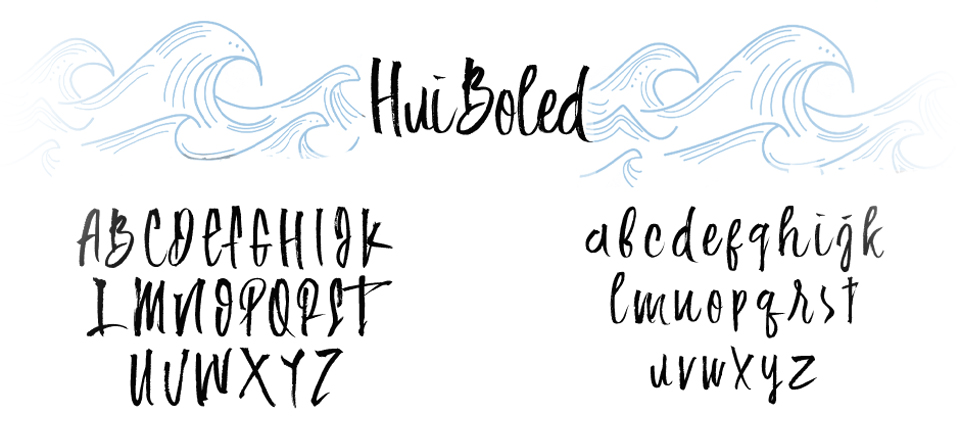 HuiBoled
ABCDEFGHIJK
LMNOPQRST
UVWXYZ
abcdefghijk
lmnopqrst
uvwxyz